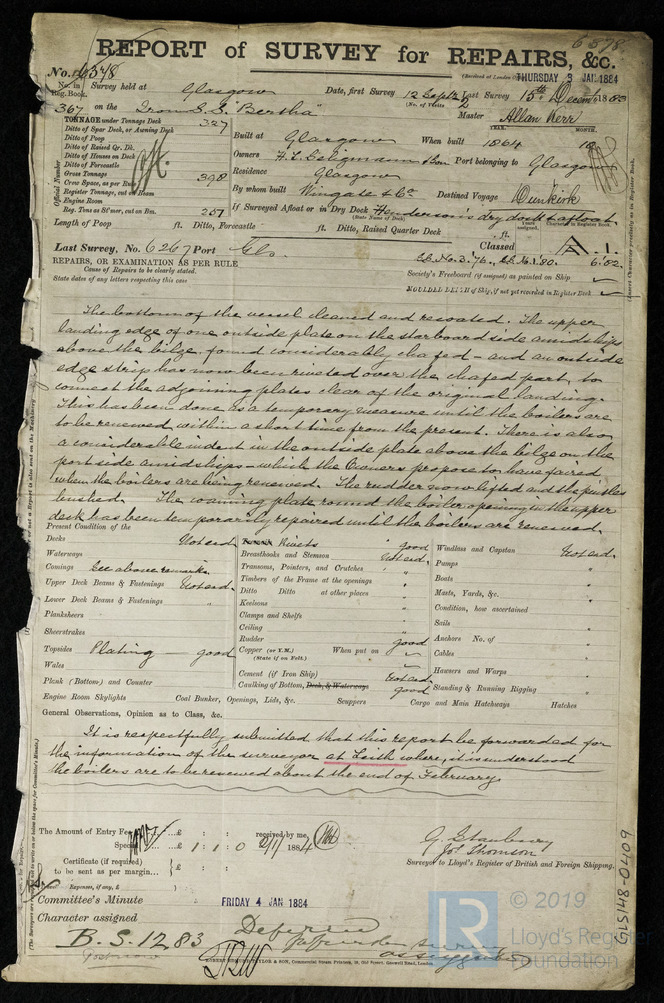 6578
REPORT of SURVEY for REPAIRS, &c.
No. 6578
(Received at London THURSDAY 3 JAN 1884
No. in Reg. Book. Survey held at Glasgow Date, first Survey 12 Sept Last Survey 15th Decemb 1883
(No. of Visits
367 on the Iron S.S. "Bertha" Master Allan Kerr
TONNAGE under Tonnage Deck 327
Ditto of Spar Deck, or Awning Deck
Ditto of Poop
Ditto of Raised Qr. Dk.
Ditto of Houses on Deck
Ditto of Forecastle
Gross Tonnage 398
Crew Space, as per Rule
Register Tonnage, cut on Beam
Engine Room
Reg. Tons as St'mer, cut on Bm. 257
Official Number
YEAR. MONTH.
Built at Glasgow When built 1864 10
Owners H. L. Seligmann & Son Port belonging to Glasgow
Residence Glasgow
By whom built Wingate & Co. Destined Voyage Dunkirk
If Surveyed Afloat or in Dry Dock Henderson's dry dock & afloat
(State Name of Dock)
Length of Poop ft. Ditto, Forecastle ft. Ditto, Raised Quarter Deck ft.
Last Survey, No. 6267 Port Gls.
Classed A.1.
S.S. No. 3. '76. S.S. No. 1. 80. 6.82.
REPAIRS, OR EXAMINATION AS PER RULE
Cause of Repairs to be clearly stated.
State dates of any letters respecting this case
Society's Freeboard (if assigned) as painted on Ship
MOULDED DEPTH of Ship, if not yet recorded in Register Book
The bottom of the vessel cleaned and recoated. The upper
landing edge of one outside plate on the starboard side amidships
above the bilge, found considerably chafed - and an outside
edge strip has now been riveted over the chafed part, to
connect the adjoining plates clear of the original landing.
This has been done as a temporary measure until the boilers are
to be renewed within a short time from the present. There is also
a considerable indent in the outside plate above the bilge on the
port side amidships - which the Owners propose to have faired
when the boilers are being renewed. The rudder now lifted and the pintles
bushed. The coaming plate round the boiler opening in the upper
deck has been temporarily repaired until the boilers are renewed.
Present Condition of the
Decks Not exd.
Waterways
Comings See above remarks
Upper Deck Beams & Fastenings Not exd.
Lower Deck Beams & Fastenings "
Planksheers
Sheerstrakes
Topsides Plating good
Wales
Plank (Bottom) and Counter
Engine Room Skylights Coal Bunker, Openings, Lids, &c. Scuppers Cargo and Main Hatchways Hatches
Rivets good
Breasthooks and Stemson Not exd.
Transoms, Pointers, and Crutches "
Timbers of the Frame at the openings "
Ditto Ditto at other places "
Keelsons "
Clamps and Shelfs "
Ceiling "
Rudder good
Copper (or Y.M.) When put on
(State if on Felt.)
Cement (if Iron Ship) Not exd.
Caulking of Bottom, Deck, & Waterways good
Windlass and Capstan Not exd.
Pumps "
Boats "
Masts, Yards, &c. "
Condition, how ascertained "
Sails "
Anchors No. of "
Cables "
Hawsers and Warps "
Standing & Running Rigging "
General Observations, Opinion as to Class, &c.
It is respectfully submitted that this report be forwarded for
the information of the surveyor at Leith where, it is understood
the boilers are to be renewed about the end of February.
The Amount of Entry Fee £ : :
Special £ 1 : 1 : 0 received by me,
2/1/1884
Certificate (if required) to be sent as per margin £ : :
Expenses, if any, £
G. Stanbury
Jos. Thomson
Surveyor to Lloyd's Register of British and Foreign Shipping.
Committee's Minute FRIDAY 4 JAN 1884
Character assigned Deferred
B.S. 12.83
as suggested
TAYLOR & SON, Commercial Steam Printers, 19, Old Street, Goswell Road, London
LR
© 2019
Lloyd's Register
Foundation